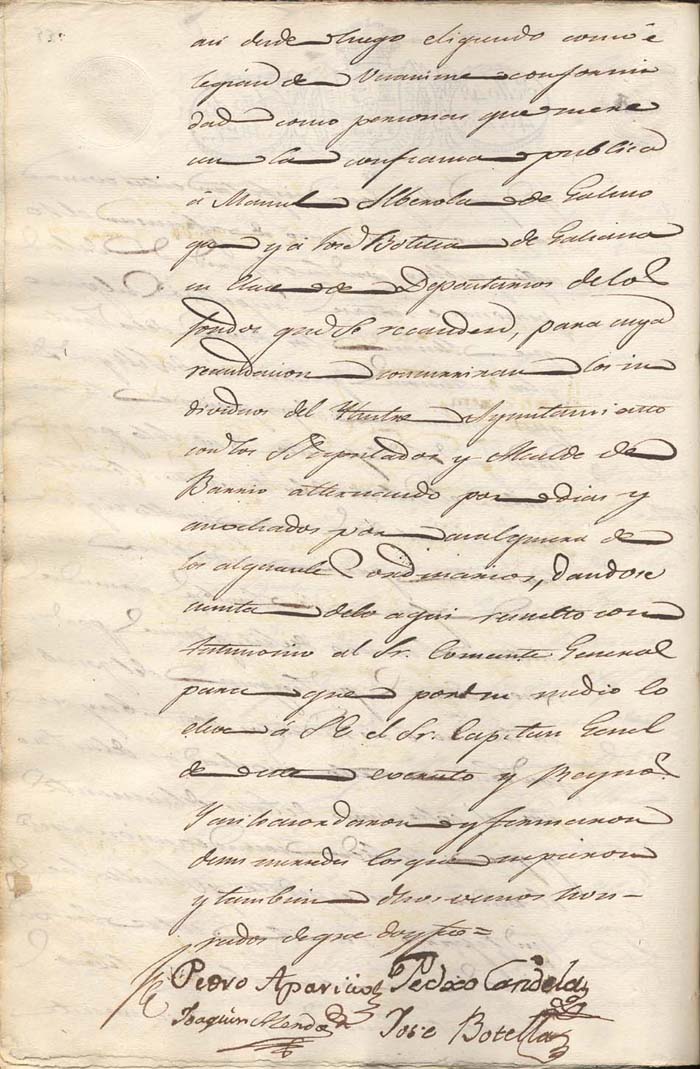 asi desde luego eligiendo como e
legian de Unanime conformi
dad como personas que mere
cen la confianza publica
á Manuel Alberola de Galino
que y á José Botella de Galiana
en clase de Depositarios de los
fondos que se recauden, para cuya
recaudacion comisionan los in
dividuos del Ilustre Ayuntamiento
con los Diputados y Alcalde de
Barrio alternando por dias y
asociados por cualquiera de
los alguaciles ordinarios, dandose
cuenta de lo aqui resuelto con
testimonio al Sr. Comante General
para que por su medio lo
eleve á S E el Sr. Capitan Genel
de este exercito y Reyno.
Y asi lo acordaron y firmaron
de sus mercedes los que supieron
y tambien otros vecinos hon-
rados de que doy fe=
Pedro Aparicio Pedro Candela
Joaquin José Botella